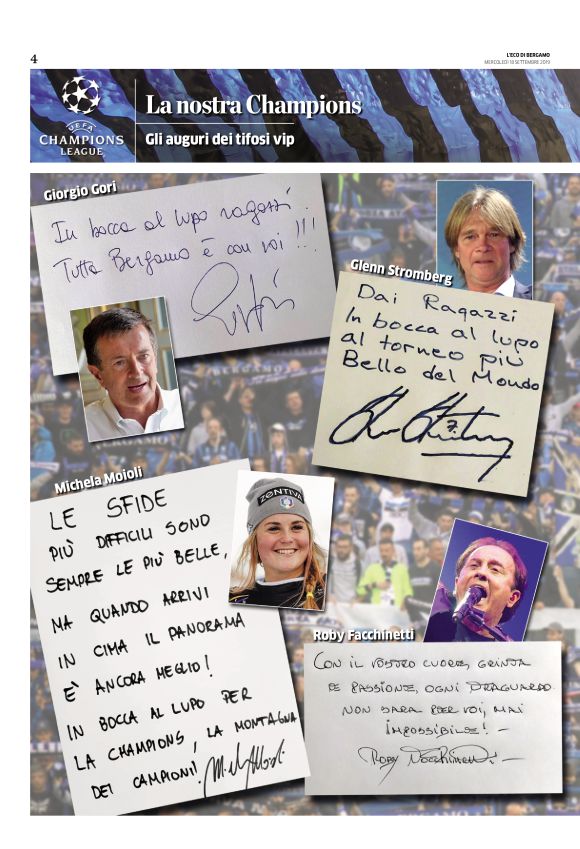 4
L'ECO DI BERGAMO
MERCOLEDÌ 18 SETTEMBRE 2019
UEFA
CHAMPIONS
LEAGUE
La nostra Champions
Gli auguri dei tifosi vip
Giorgio Gori
In bocca al lupo ragazzi.
Tutta Bergamo è con voi!!!
Glenn Stromberg
Dai Ragazzi
In bocca al lupo
al torneo più
Bello del Mondo
7.
Michela Moioli
LE SFIDE
PIÙ DIFFICILI SONO
SEMPRE LE PIÙ BELLE,
MA QUANDO ARRIVI
IN CIMA IL PANORAMA
E' ANCORA MEGLIO!
IN BOCCA AL LUPO PER
LA CHAMPIONS, LA MONTAGNA
DEI CAMPIONI!
ZENTIVA
Roby Facchinetti
CON IL VOSTRO CUORE, GRINTA
E PASSIONE, OGNI TRAGUARDO
NON SARA PER VOI, MAI
IMPOSSIBILE! -
Roby Facchinetti -
BERGAMO